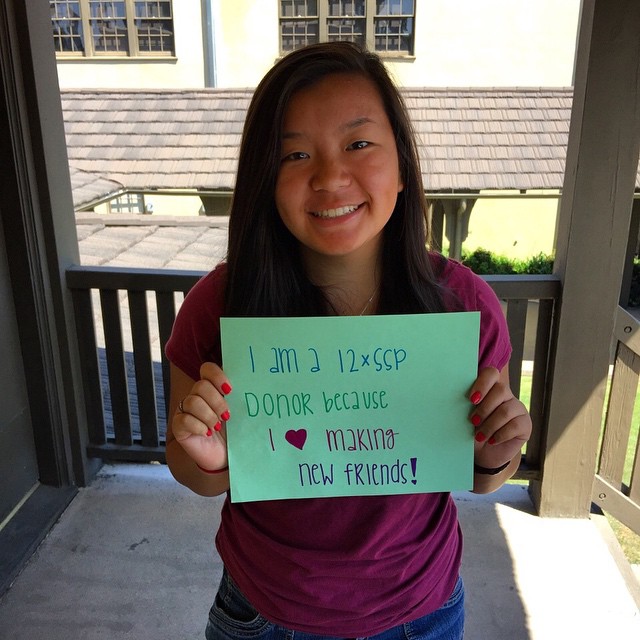 I am a 12xSSP
DONOR because
I ♥ making
new friends!